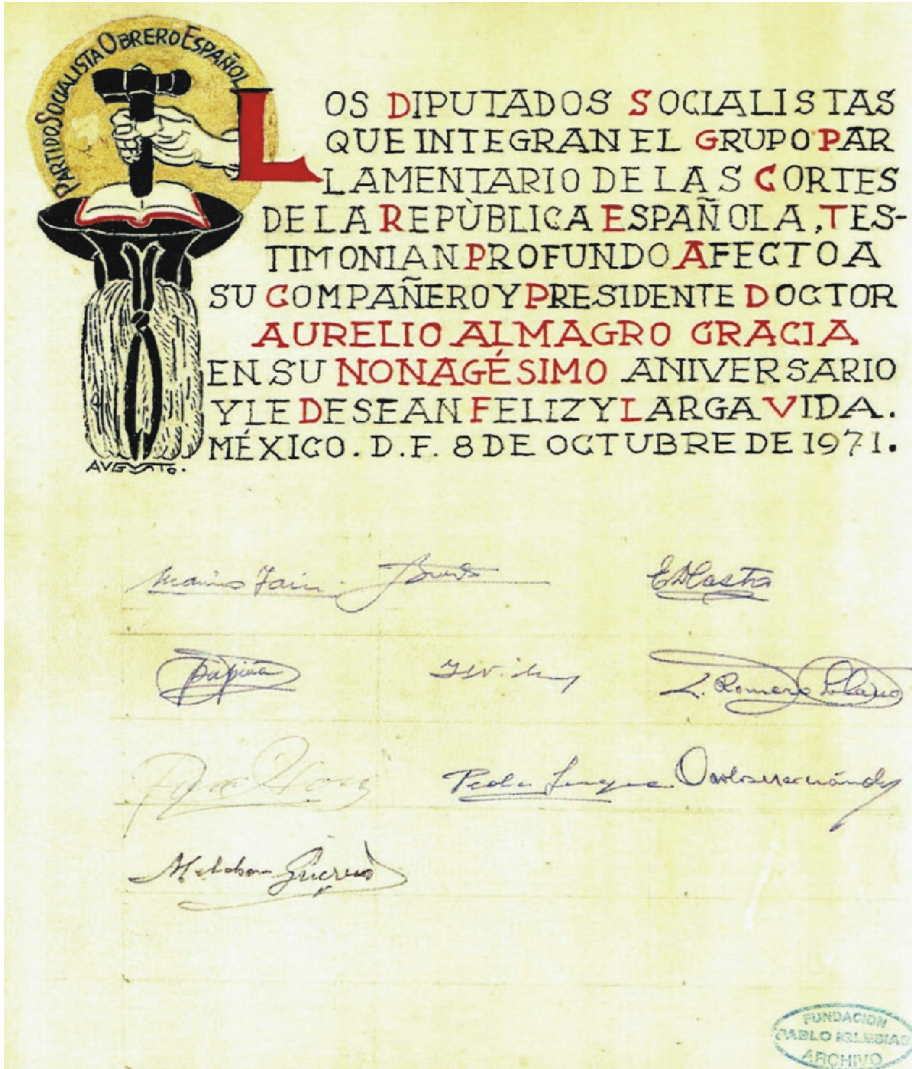 PARTIDO SOCIALISTA OBRERO ESPAÑOL
LOS DIPUTADOS SOCIALISTAS
QUE INTEGRAN EL GRUPO PAR
LAMENTARIO DE LAS CORTES
DE LA REPÙBLICA ESPAÑOLA, TES-
TIMONIAN PROFUNDO AFECTO A
SU COMPAÑERO Y PRESIDENTE DOCTOR
AURELIO ALMAGRO GRACIA
EN SU NONAGÉSIMO ANIVERSARIO
Y LE DESEAN FELIZ Y LARGA VIDA.
MÉXICO. D.F. 8 DE OCTUBRE DE 1971.
AUGUSTO.
L. Romero Solano
Pedro
Melchor Guerrero
FUNDACION
PABLO IGLESIAS
ARCHIVO